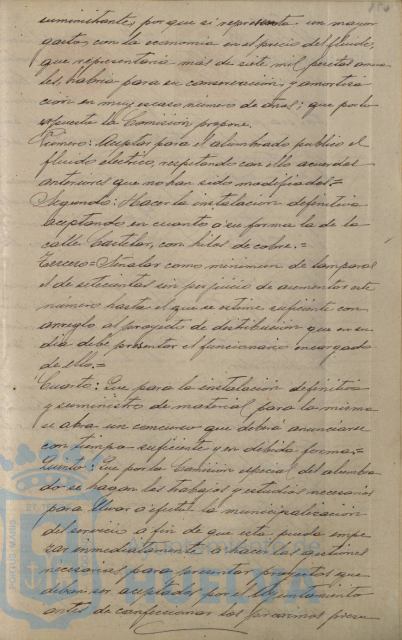 suministrantes, porque si representa un mayor
gasto, con la economia en el precio del fluido,
que representaria más de siete mil pesetas anua-
les, habria para su conservacion y amortiza-
cion en muy escaso número de años; que por lo
expuesto la Comision propone.
Primero: Aceptar para el alumbrado publico el
fluido electrico, respetando con ello acuerdos
anteriores que no han sido modificados.=
Segundo: Hacer la instalacion definitiva
aceptando en cuanto á su forma la de la
calle Castelar, con hilos de cobre.=
Tercero= Señalar como minimum de lamparas
el de setecientas sin perjuicio de aumentar este
número hasta el que se estime suficiente con
arreglo al proyecto de distribucion que en su
dia debe presentar el funcionario encargado
de ello.=
Cuarto: Que para la instalacion definitiva
y suministro de material para la misma
se abra un concurso que deberá anunciarse
con tiempo suficiente y en debida forma=
Quinto: Que por la Comision especial del alumbra-
do se hagan los trabajos y estudios necesarios
para llevar á efecto la municipalizacion
del servicio á fin de que esta pueda empe-
zar inmediatamente á hacer las gestiones
necesarias para presentar proyectos que
deban ser aceptados por el Ayuntamiento
antes de confeccionar los proximos presu-
PORTUS MARIS
Ayuntamiento de
HUELVA